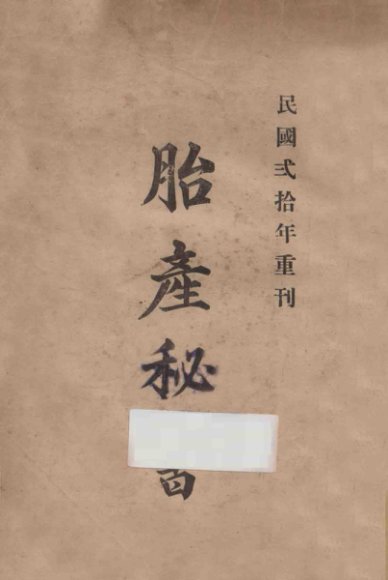 民國弍拾年重刊
胎產秘